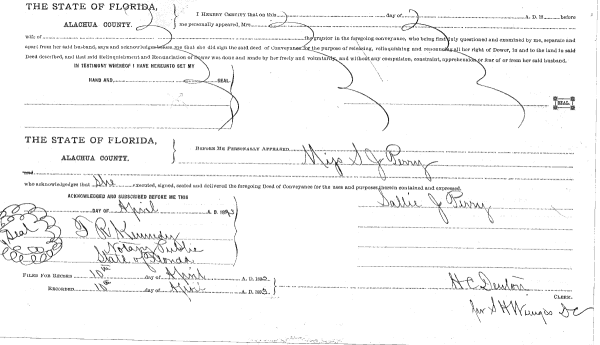 THE STATE OF FLORIDA,
ALACHUA COUNTY.
I HEREBY CERTIFY that on this day of A. D. 18 before
me personally appeared, Mrs.
wife of the grantor in the foregoing conveyance, who being first duly questioned and examined by me, separate and
apart from her said husband, says and acknowledges before me that she did sign the said deed of Conveyance for the purpose of releasing, relinquishing and renouncing all her right of Dower, in and to the land in said
Deed described, and that said Relinquishment and Renunciation of Dower was done and made by her freely and voluntarily, and without any compulsion, constraint, apprehension or fear of or from her said husband.
IN TESTIMONY WHEREOF I HAVE HEREUNTO SET MY
HAND AND SEAL
SEAL
THE STATE OF FLORIDA,
ALACHUA COUNTY.
BEFORE ME PERSONALLY APPEARED Miss S J Perry
who acknowledges that she executed, signed, sealed and delivered the foregoing Deed of Conveyance for the uses and purposes therein contained and expressed.
ACKNOWLEDGED AND SUBSCRIBED BEFORE ME THIS
Sallie J Perry
DAY OF April A. D. 1893
Seal
R Kennedy
Notary Public
State of Florida
FILED FOR RECORD 10th day of April A. D. 1893
RECORDED 10th day of April A. D. 1893
H C Denton
CLERK.
per S H Wienges D C